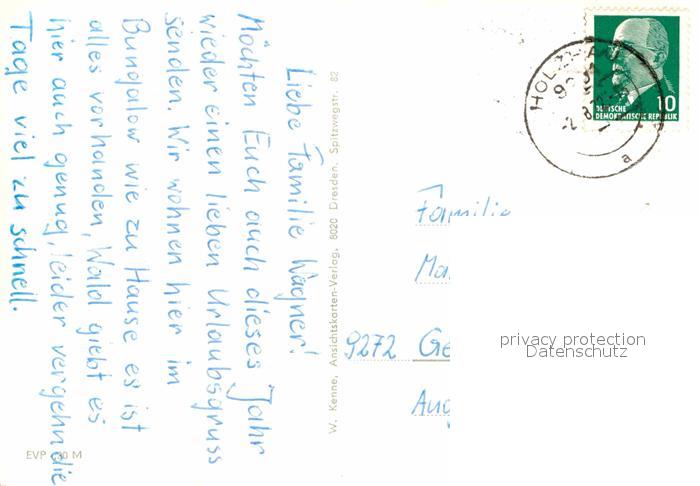 Liebe Familie Wagner!
Möchten Euch auch dieses Jahr
wieder einen lieben Urlaubsgruss
senden. Wir wohnen hier im
Bungalow wie zu Hause es ist
alles vorhanden, Wald giebt es
hier auch genug, leider vergehn die
Tage viel zu schnell.
EVP M
W. Kenne, Ansichtskarten-Verlag, 8020 Dresden, Spitzwegstr. 82
10
DEUTSCHE
DEMOKRATISCHE REPUBLIK
a
Familie
9272
privacy protection
Datenschutz